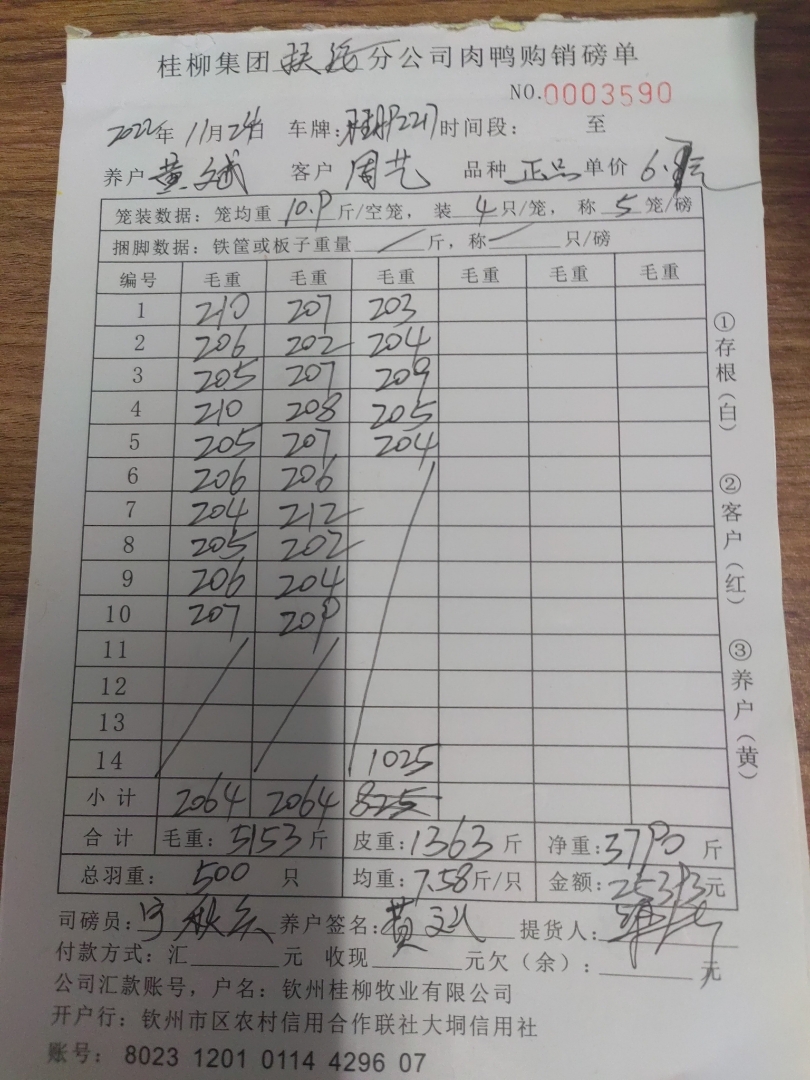 桂柳集团扶绥分公司肉鸭购销磅单
NO.0003590
2022年 11月24日 车牌: 2217 时间段: 至
养户 黄文斌 客户 周艺 品种 正品 单价 6.
笼装数据: 笼均重 10.9 斤/空笼, 装 4 只/笼, 称 5 笼/磅
捆脚数据: 铁筐或板子重量 / 斤, 称 / 只/磅
编号 毛重 毛重 毛重 毛重 毛重 毛重
1 210 207 203
2 206 202 204
3 205 207 209
4 210 208 205
5 205 207 204
6 206 206
7 204 212
8 205 202
9 206 204
10 207 209
11
12
13
14 1025
小计 2064 2064 825
合计 毛重: 5153 斤 皮重: 1363 斤 净重: 3790 斤
总羽重: 500 只 均重: 7.58 斤/只 金额: 元
司磅员: 养户签名: 黄文斌 提货人:
付款方式: 汇 元 收现 元欠(余): 元
公司汇款账号, 户名: 钦州桂柳牧业有限公司
开户行: 钦州市区农村信用合作联社大垌信用社
账号: 8023 1201 0114 4296 07
①存根(白)
②客户(红)
③养户(黄)